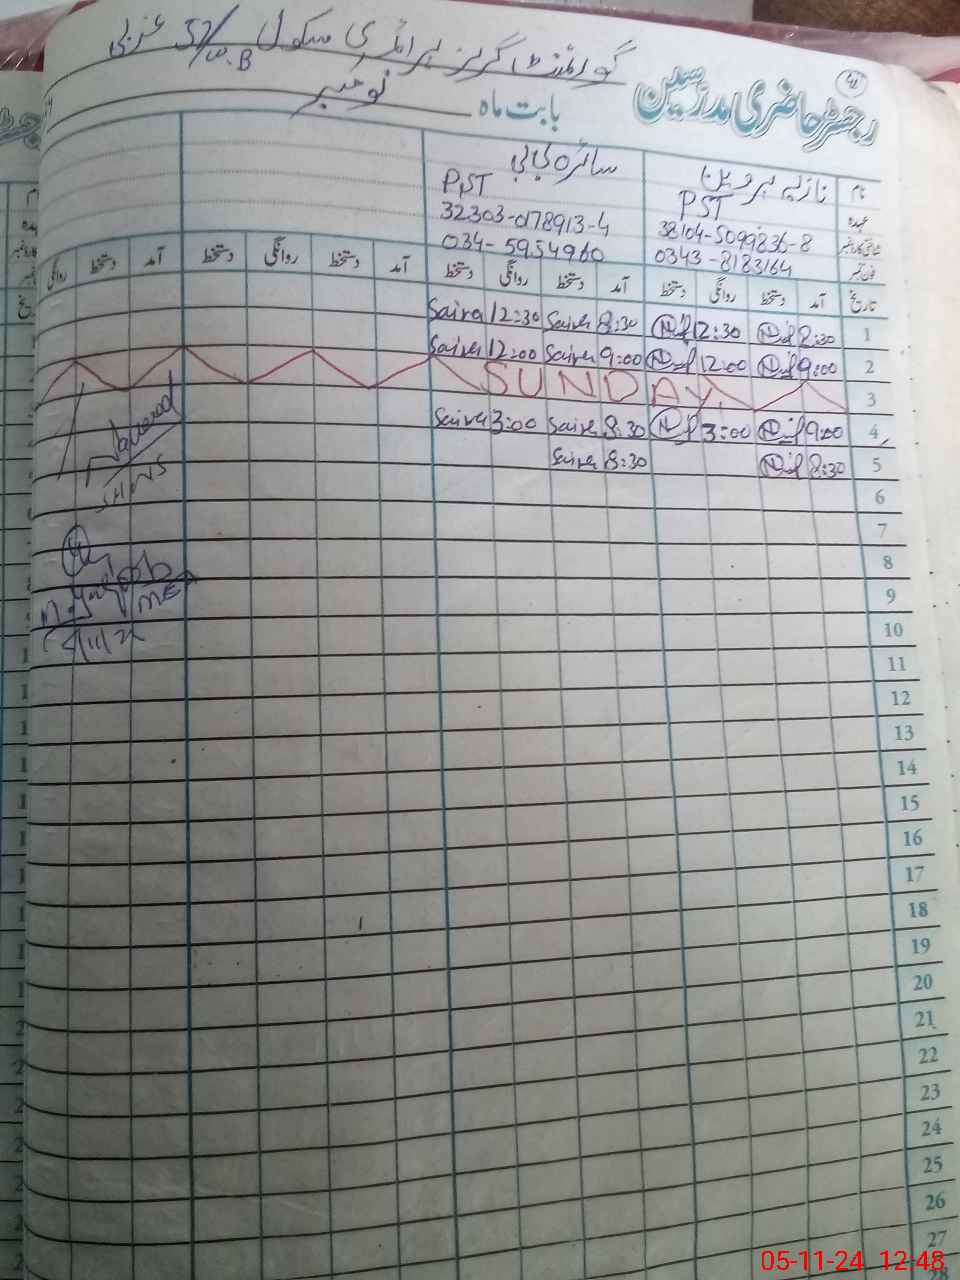 گورنمنٹ گرلز پرائمری سکول 57/W.B غربی
رجسٹر حاضری مدرسین بابت ماہ نومبر
نام نازیہ پروین سائرہ بی بی
عہدہ PST PST
38104-5099836-8 32303-0178913-4
0343-8183164 034-5954960
تاریخ آمد دستخط روانگی دستخط آمد دستخط روانگی دستخط آمد دستخط روانگی دستخط آمد دستخط روانگی
1 8:30 12:30 8:30 Saira 12:30 Saira
2 9:00 12:00 9:00 Saira 12:00 Saira
3 SUNDAY
4 9:00 3:00 8:30 Saira 3:00 Saira
5 8:30 8:30 Saira
6
7
8
9
10
11
12
13
14
15
16
17
18
19
20
21
22
23
24
25
26
27
28
05-11-24 12-48